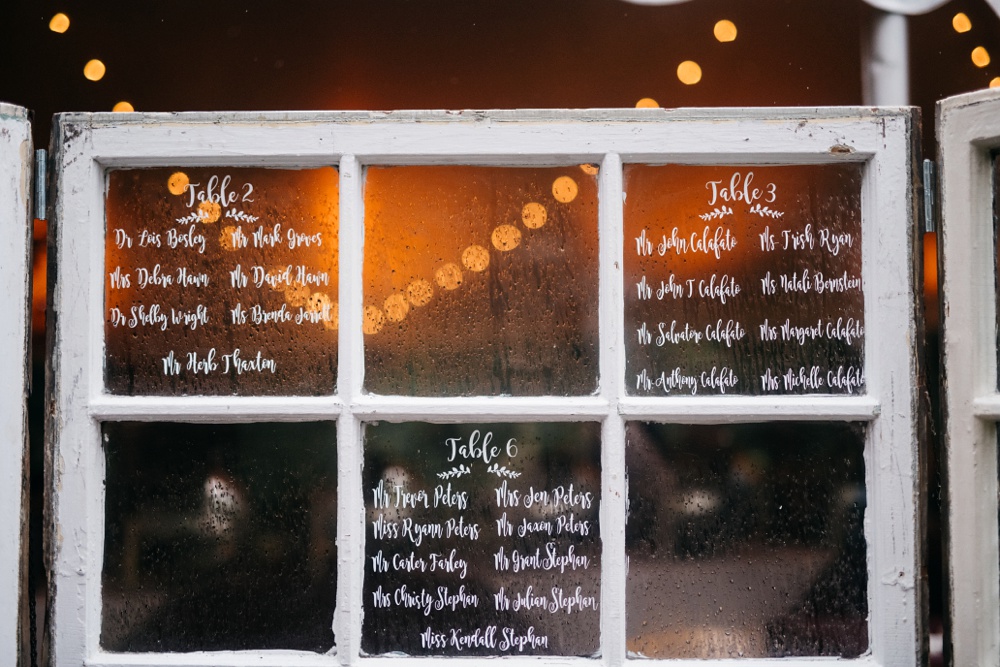 Table 2
Dr Lois Bosley Mr Mark Groves
Mrs Debra Hawn Mr David Hawn
Dr Shelby Wright Ms Brenda Jarrell
Mr Herb Thaxton
Table 3
Mr John Calafato Ms Trish Ryan
Mr John T Calafato Ms Natali Bernstein
Mr Salvatore Calafato Mrs Margaret Calafato
Mr Anthony Calafato Mrs Michelle Calafato
Table 6
Mr Trevor Peters Mrs Jen Peters
Miss Ryann Peters Mr Jaxon Peters
Mr Carter Farley Mr Grant Stephan
Mrs Christy Stephan Mr Julian Stephan
Miss Kendall Stephan